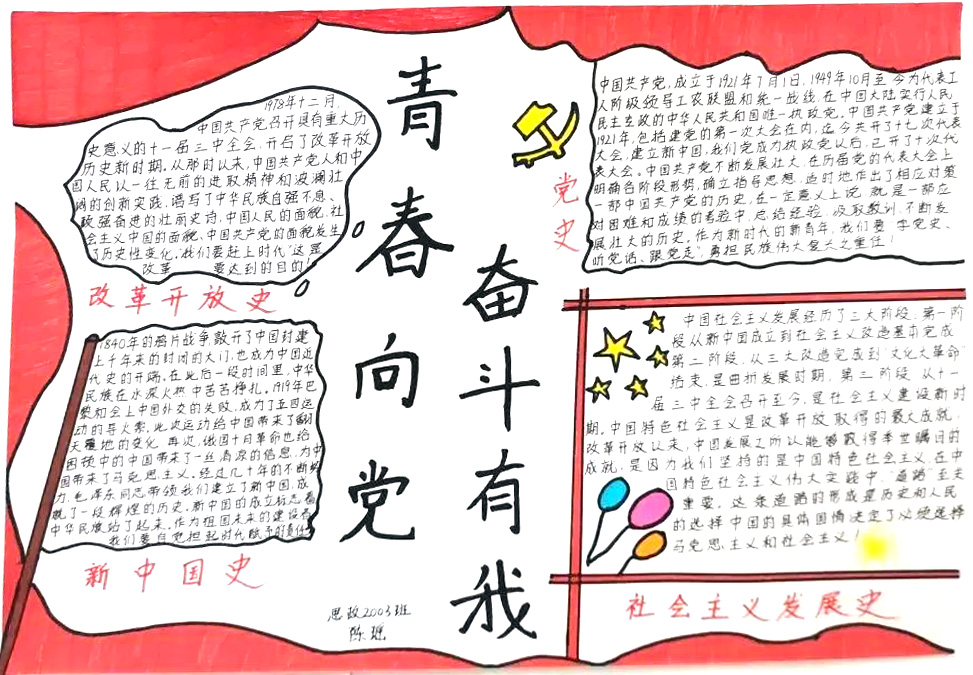 青春向党
奋斗有我
1978年十二月,
中国共产党召开具有重大历
史意义的十一届三中全会,开启了改革开放
历史新时期。从那时以来,中国共产党人和中
国人民以一往无前的进取精神和波澜壮
阔的创新实践,谱写了中华民族自强不息、
顽强奋进的壮丽史诗,中国人民的面貌、社
会主义中国的面貌、中国共产党的面貌发生
了历史性变化。我们要赶上时代"这是
改革 要达到的目的!
改革开放史
1840年的鸦片战争敲开了中国封建
上千年来的封闭的大门,也成为中国近
代史的开端。在此后一段时间里,中华
民族在水深火热中苦苦挣扎。1919年巴
黎和会上中国外交的失败,成为了五四运
动的导火索,此次运动给中国带来了翻
天覆地的变化。再次,俄国十月革命也给
困顿中的中国带来了一丝清凉的信息,为中
国带来了马克思主义。经过几十年的不断努
力,毛泽东同志带领我们建立了新中国,成
就了一段辉煌的历史。新中国的成立标志着
中华民族站了起来。作为祖国未来的建设者
我们要自觉担起时代赋予的责任
新中国史
思政2003班
陈瑶
党史
中国共产党,成立于1921年7月1日,1949年10月至今为代表工
人阶级领导工农联盟和统一战线,在中国大陆实行人民
民主专政的中华人民共和国唯一执政党。中国共产党建立于
1921年,包括建党的第一次大会在内,迄今共开了十七次代表
大会,建立新中国,我们党成为执政党以后,已开了十次代
表大会。中国共产党不断发展壮大,在历届党的代表大会上
明确各阶段形势,确立指导思想,适时地作出了相应对策
一部中国共产党的历史,在一定意义上说,就是一部应
对困难和成绩的考验中,总结经验,汲取教训,不断发
展壮大的历史。作为新时代的新青年,我们要"学党史、
听党话、跟党走",勇担民族伟大复兴之重任!
中国社会主义发展经历了三大阶段:第一阶
段从新中国成立到社会主义改造基本完成,
第二阶段,从三大改造完成到"文化大革命"
结束,是曲折发展时期,第三阶段,从十一
届三中全会召开至今,是社会主义建设新时
期。中国特色社会主义是改革开放取得的最大成就,
改革开放以来,中国发展之所以能够取得举世瞩目的
成就,是因为我们坚持的是中国特色社会主义,在中
国特色社会主义伟大实践中,"道路"至关
重要。这条道路的形成是历史和人民
的选择,中国的具体国情决定了必须选择
马克思主义和社会主义!
社会主义发展史